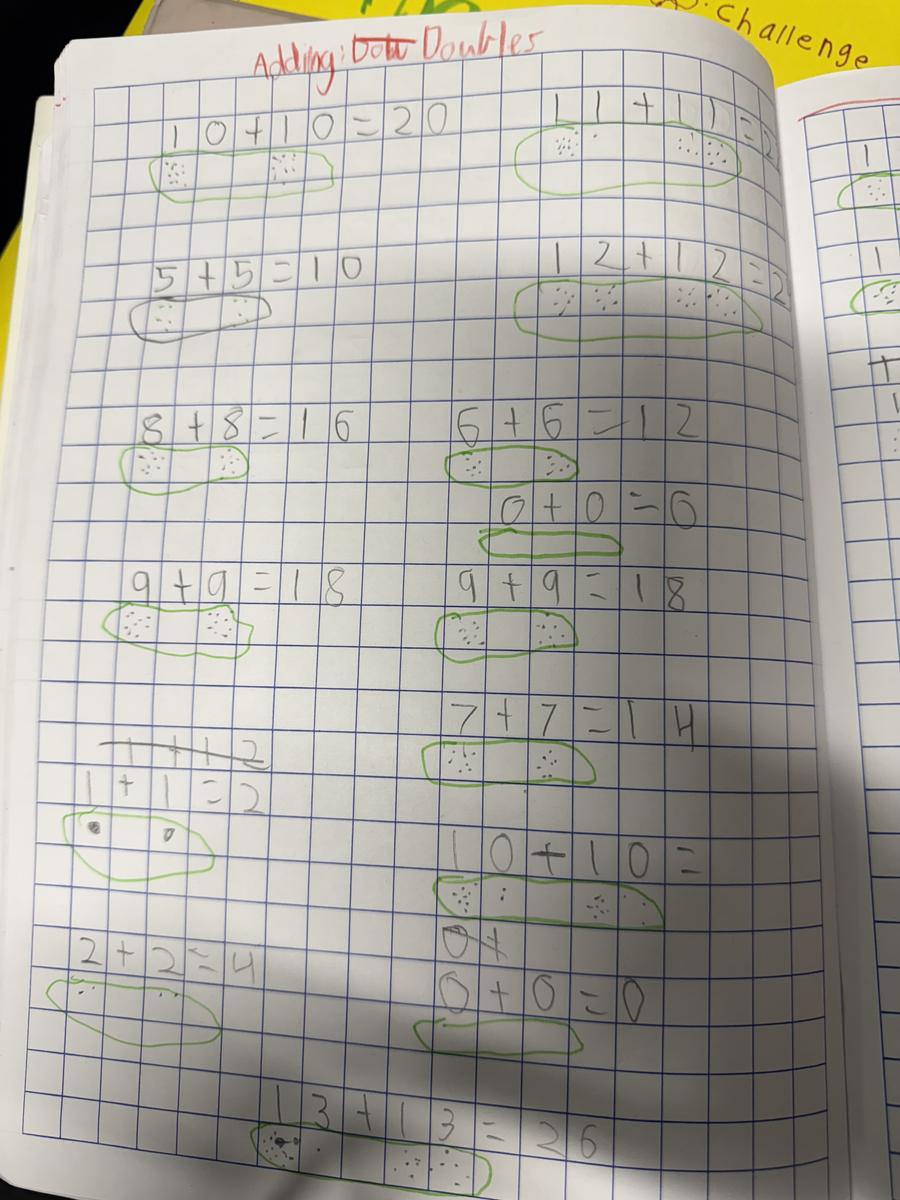 Challenge
Adding: Doubles
10+10=20
11+11=2
5+5=10
12+12=2
8+8=16
6+6=12
0+0=0
9+9=18
9+9=18
7+7=14
1+1=2
10+10=
2+2=4
0+
0+0=0
13+13=26